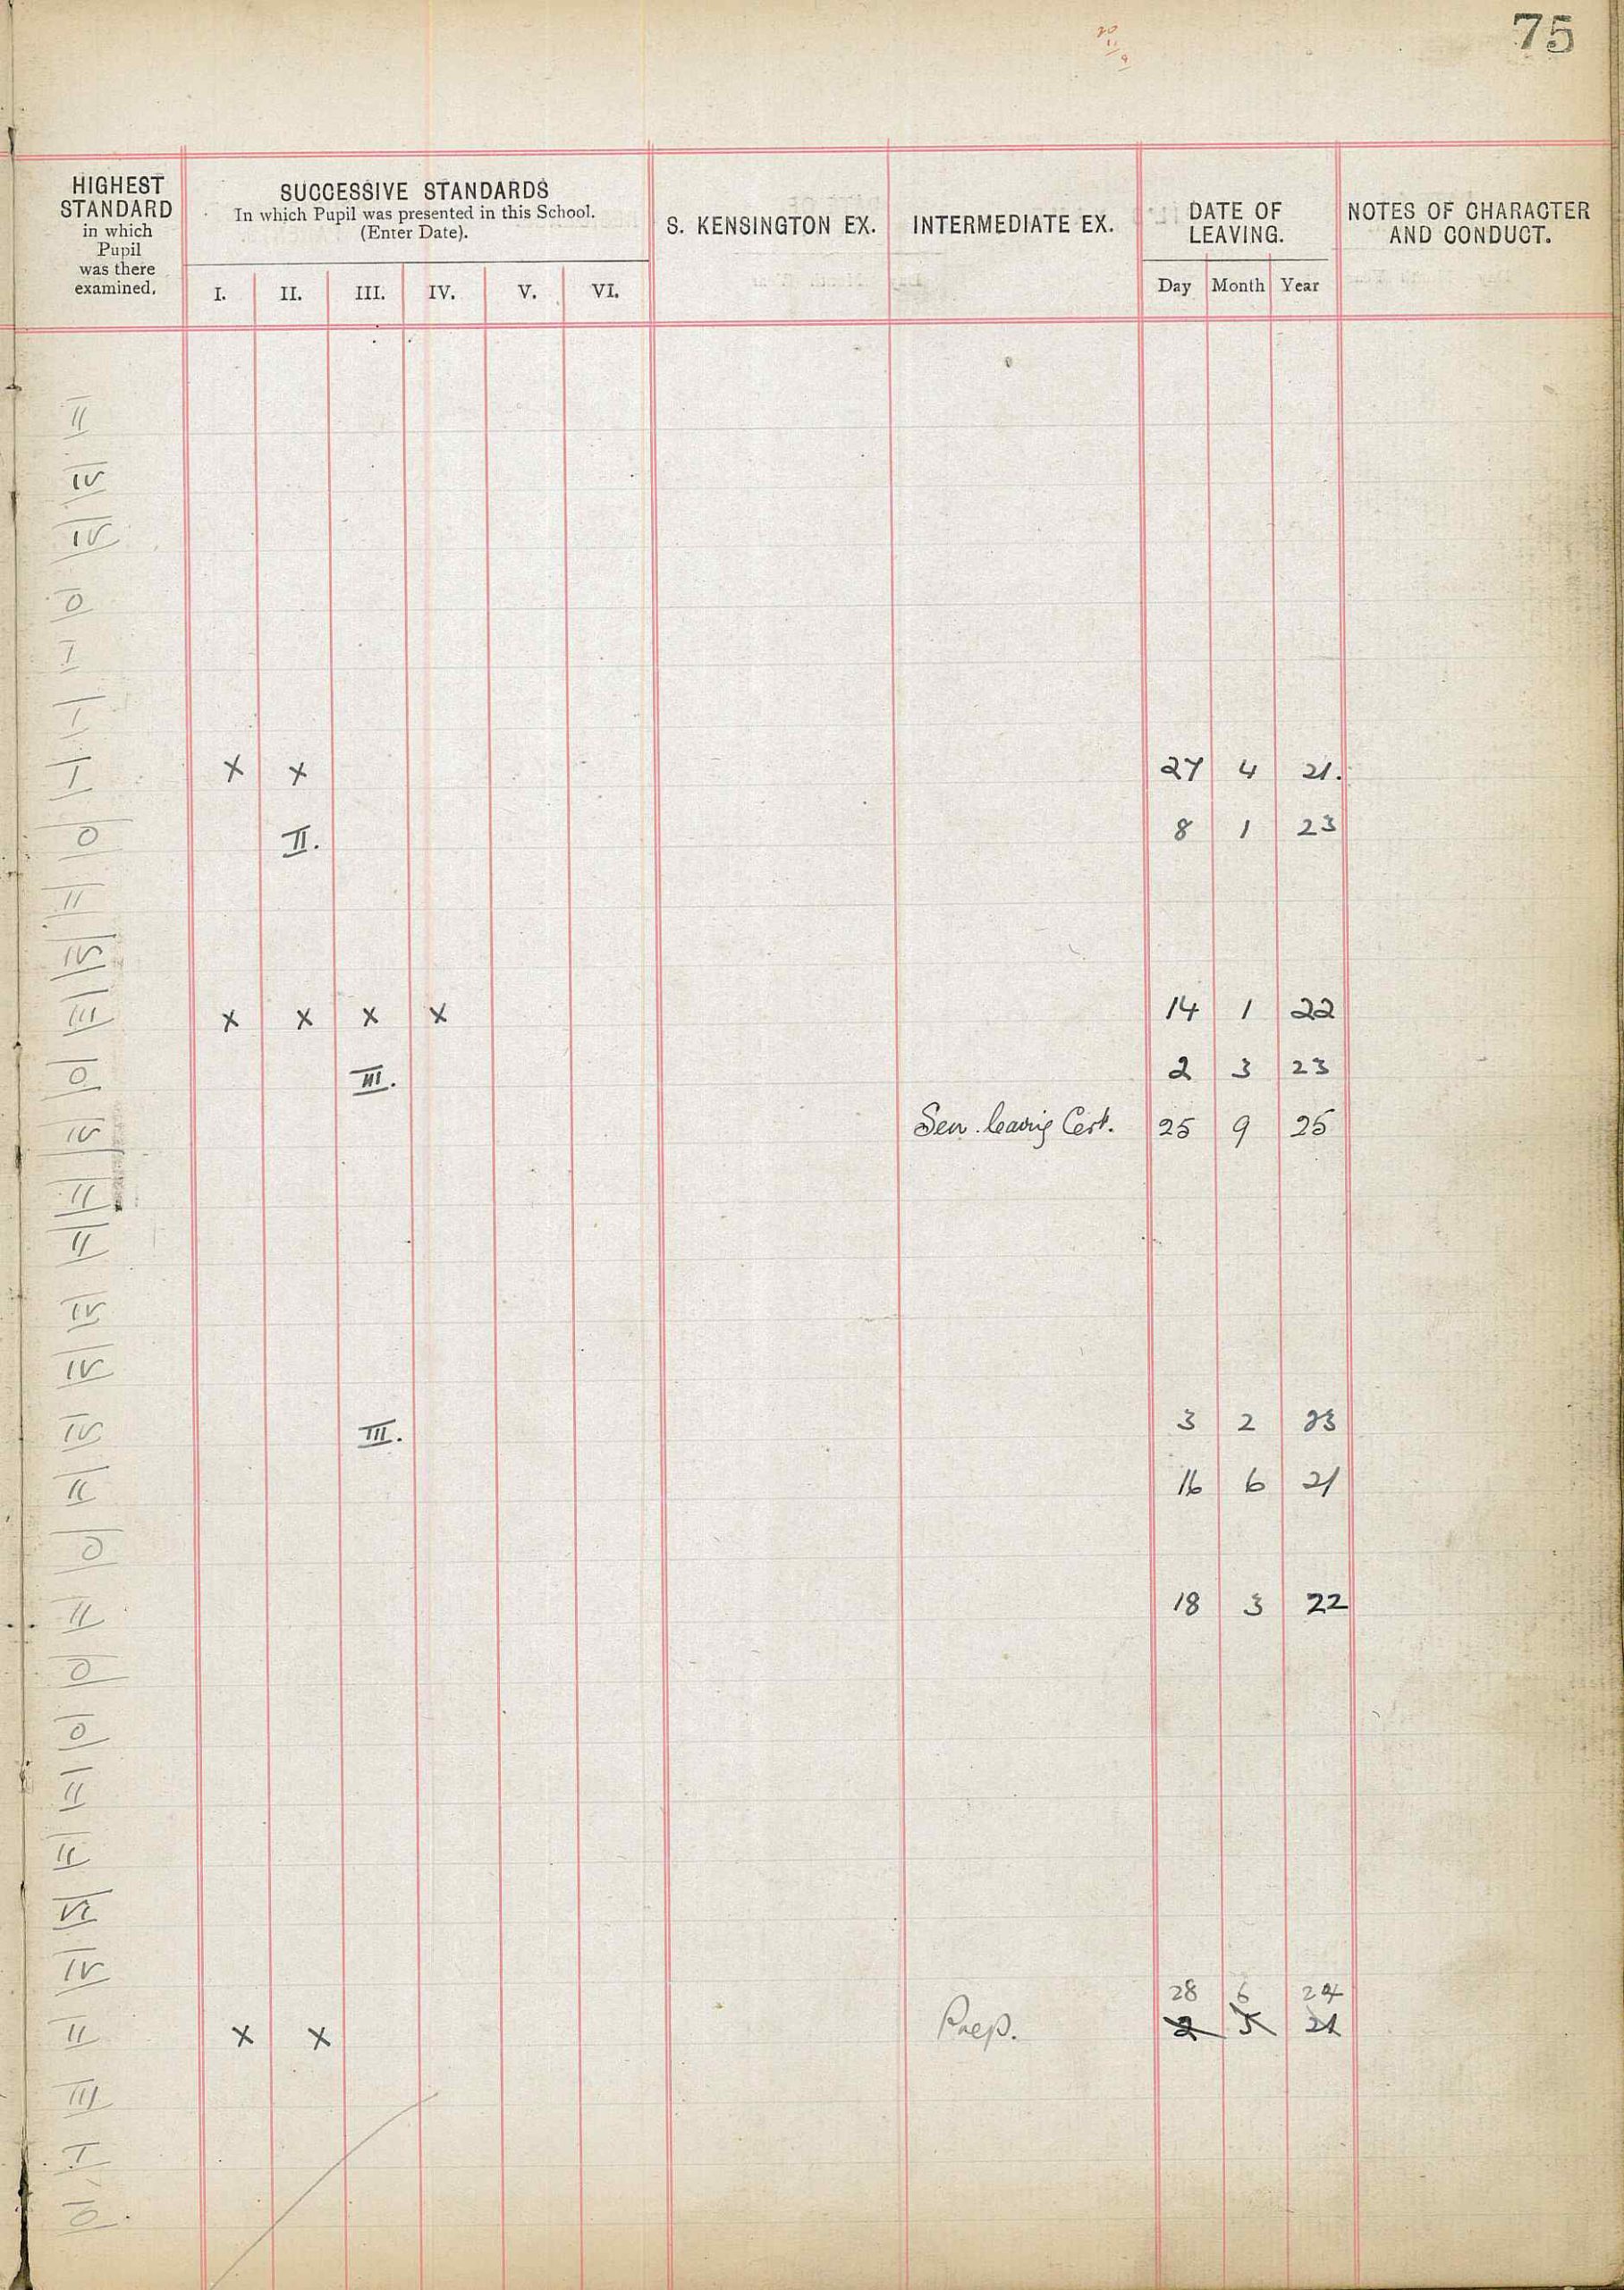 75
20
11
9
HIGHEST STANDARD in which Pupil was there examined.
SUCCESSIVE STANDARDS
In which Pupil was presented in this School.
(Enter Date).
I. II. III. IV. V. VI.
S. KENSINGTON EX.
INTERMEDIATE EX.
DATE OF LEAVING.
Day Month Year
NOTES OF CHARACTER AND CONDUCT.
II
IV
IV
0
I
I
I x x 27 4 21.
0 II. 8 1 23
II
IV
III x x x x 14 1 22
0 III. 2 3 23
IV Sen. leaving Cert. 25 9 25
II
II
IV
IV
IV III. 3 2 23
II 16 6 21
0
II 18 3 22
0
0
II
II
VI
IV
28 6 24
II x x Prep. 2 5 21
III
I
0.